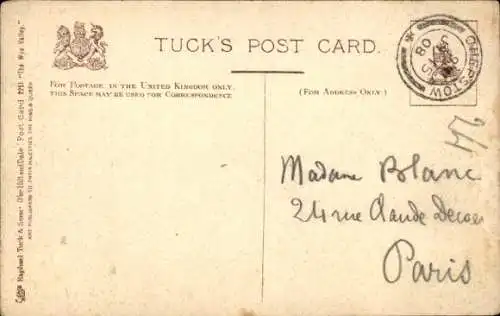 TUCK'S POST CARD.
FOR POSTAGE IN THE UNITED KINGDOM ONLY,
THIS SPACE MAY BE USED FOR CORRESPONDENCE
(FOR ADDRESS ONLY)
CHEPSTOW
08
Madame Blanc
24 rue Claude
Paris
Raphael Tuck & Sons' "Hill and Dale" Post Card "The Wye Valley."
ART PUBLISHERS TO THEIR MAJESTIES THE KING & QUEEN